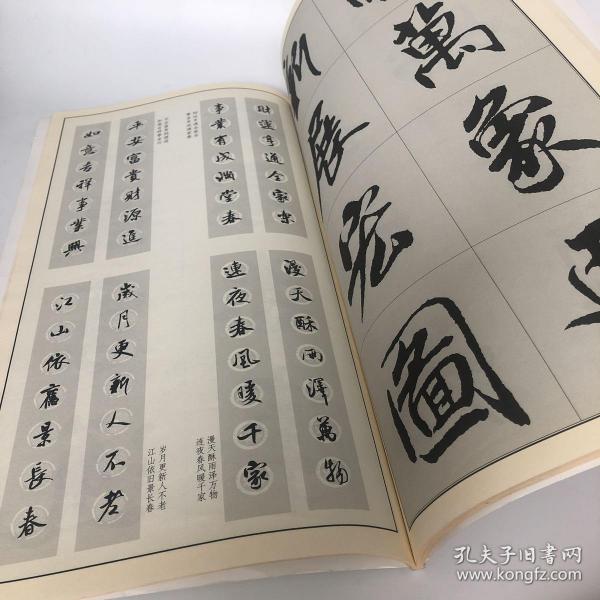 財運亨通全家樂
事業有成滿堂春
平安富貴財源進
如意吉祥事業興
漫天酥雨澤萬物
連夜春風暖千家
漫天酥雨泽万物
连夜春风暖千家
歲月更新人不老
江山依舊景長春
岁月更新人不老
江山依旧景长春
萬象
展宏圖
孔夫子旧书网
www.kongfz.com